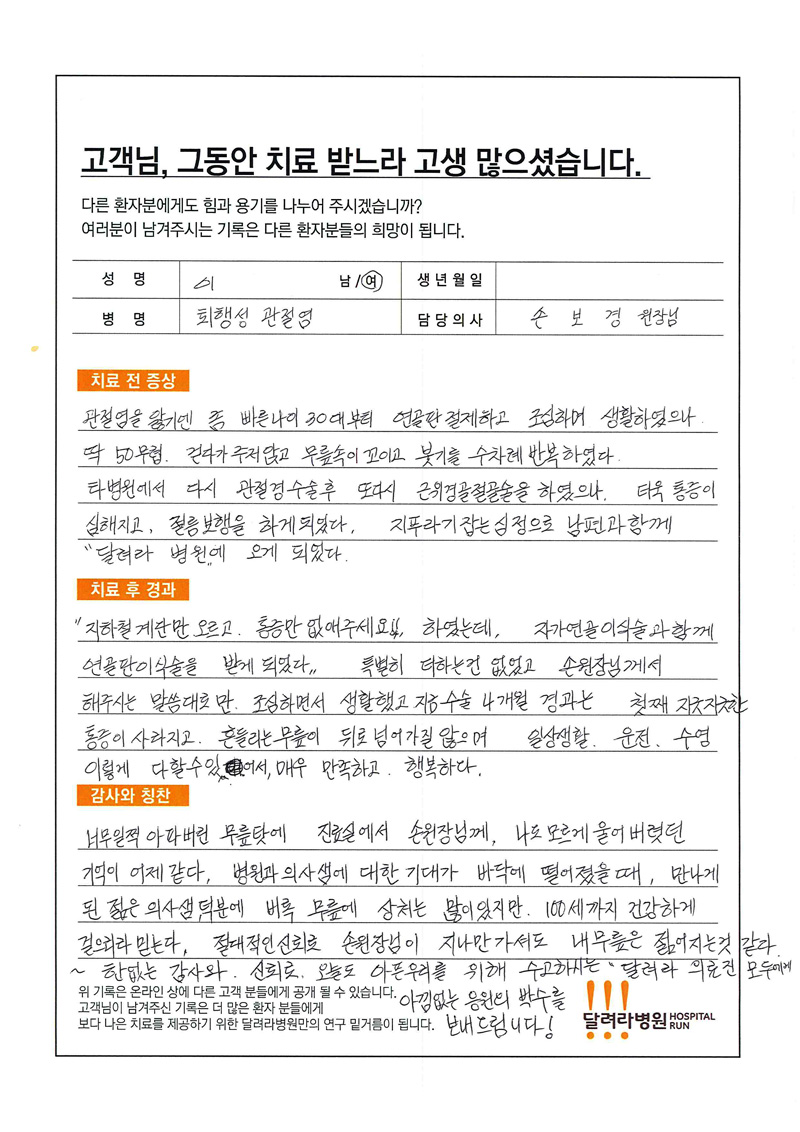 고객님, 그동안 치료 받느라 고생 많으셨습니다.
다른 환자분에게도 힘과 용기를 나누어 주시겠습니까?
여러분이 남겨주시는 기록은 다른 환자분들의 희망이 됩니다.
성 명 이 남/여 생년월일
병 명 퇴행성 관절염 담당의사 손 보 경 원장님
치료 전 증상
관절염을 앓기엔 좀 빠른나이 30대부터 연골판절제하고 조심하며 생활하였으나.
딱 50무렵. 걷다가 주저앉고 무릎속이 꼬이고 붓기를 수차례 반복하였다.
타병원에서 다시 관절경수술후 또다시 근위경골절골술을 하였으나, 더욱 통증이
심해지고, 절름보행을 하게되었다, 지푸라기잡는심정으로 남편과 함께
"달려라 병원"에 오게 되었다.
치료 후 경과
"지하철계단만 오르고. 통증만 없애주세요!!, 하였는데, 자가연골이식술과함께
연골판이식술을 받게 되었다,, 특별히 더하는건 없었고 손원장님께서
해주시는 말씀대로만. 조심하면서 생활했고 지금 수술 4개월 경과는 첫째 자긋자긋한
통증이 사라지고. 흔들리는무릎이 뒤로넘어가질 않으며 일상생활. 운전. 수영
이렇게 다할수있어서, 매우 만족하고. 행복하다.
감사와 칭찬
너무일찍 아파버린 무릎탓에 진료실에서 손원장님께, 나도 모르게 울어 버렸던
기억이 어제같다, 병원과의사샘에 대한 기대가 바닥에 떨어졌을때, 만나게
된 젊은 의사샘 덕분에 비록 무릎에 상처는 많이있지만. 100세까지 건강하게
걸으리라 믿는다, 절대적인신뢰로 손원장님이 지나만가셔도 내무릎은 젊어지는것 같다.
~ 한없는 감사와. 신뢰로. 오늘도 아픈우리를 위해 수고하시는 "달려라 의료진 모두에게
위 기록은 온라인 상에 다른 고객 분들에게 공개 될 수 있습니다. 아낌없는 응원의 박수를
고객님이 남겨주신 기록은 더 많은 환자 분들에게
보다 나은 치료를 제공하기 위한 달려라병원만의 연구 밑거름이 됩니다. 보내드립니다!
달려라병원 HOSPITAL RUN